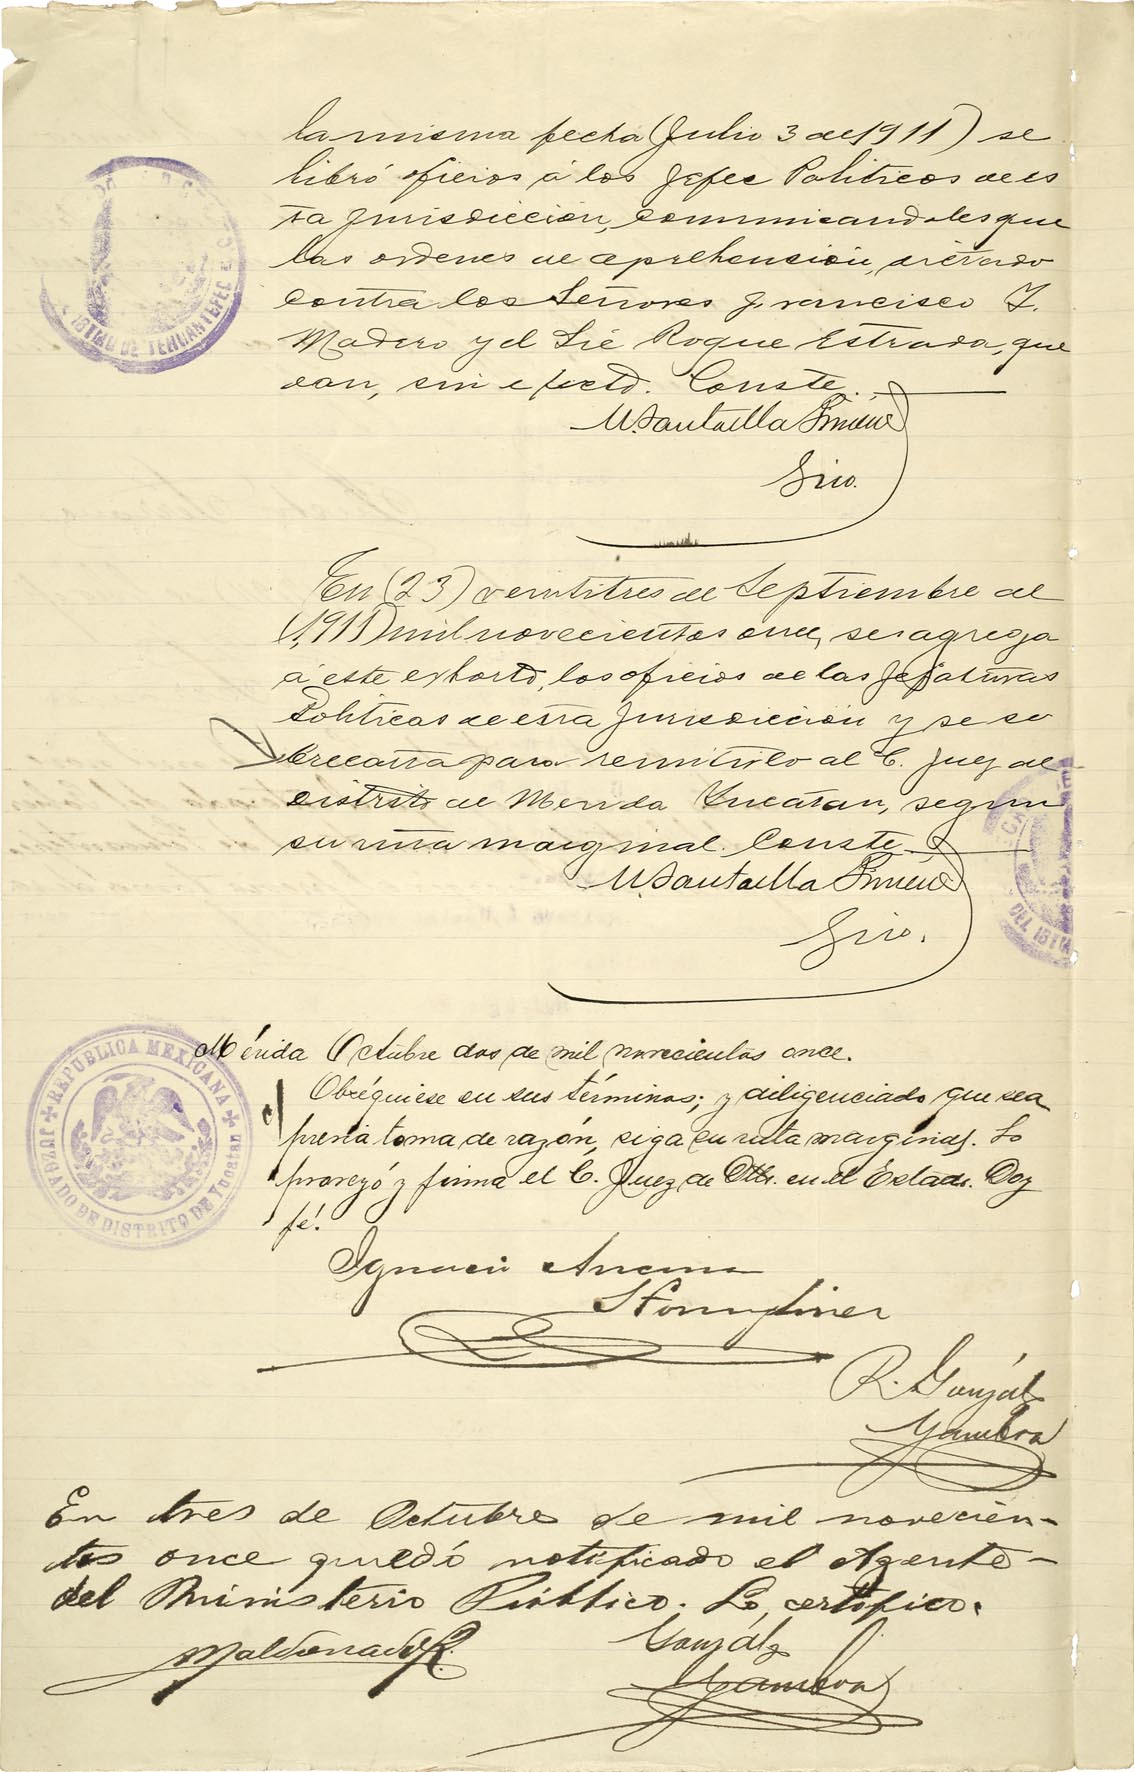 la misma fecha (Julio 3 de 1911) se
libró oficios á los Jefes Politicos de es
ta Jurisdicción, comunicandoles que
las ordenes de aprehension, dictado
contra los Señores Francisco I.
Madero y el Lic Roque Estrada, que
dan, sin efecto. Conste.
M. Santaella
Srio.
En (23) veintitres de Septiembre de
(1,911) mil novecientos once, se agrega
á este exhorto, los oficios de las Jefaturas
Politicas de esta Jurisdicción y se so
brecarta para remitirlo al C. Juez de
distrito de Merida Yucatan, segun
su ruta marginal. Conste.
M. Santaella
Srio.
Mérida Octubre dos de mil novecientos once.
Obséquiese en sus términos; y diligenciado que sea
previa toma de razón, siga su ruta marginal. Lo
proveyó y firma el C. Juez de Dtto. en el Estado. Doy
fé.
Ignacio Ancona
R. Gonzál
En tres de Octubre de mil novecien-
tos once quedó notificado el Agente
del Ministerio Público. Lo certifico.
Maldonado R.
Gonzál
ISTMO DE TEHUANTEPEC
DEL ISTM
REPUBLICA MEXICANA
JUZGADO DE DISTRITO DE Yucatan